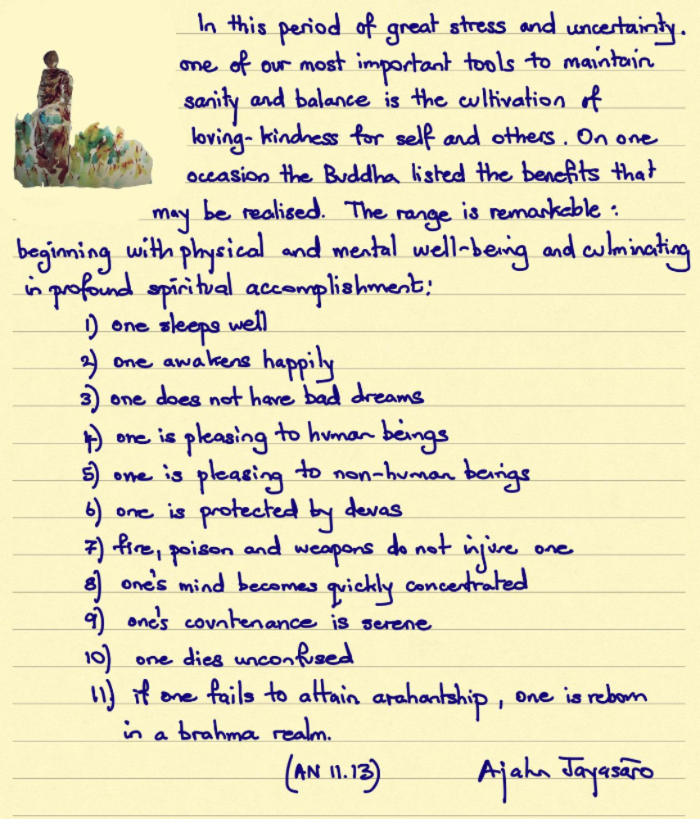 In this period of great stress and uncertainty.
one of our most important tools to maintain
sanity and balance is the cultivation of
loving-kindness for self and others. On one
occasion the Buddha listed the benefits that
may be realised. The range is remarkable:
beginning with physical and mental well-being and culminating
in profound spiritual accomplishment:
1) one sleeps well
2) one awakens happily
3) one does not have bad dreams
4) one is pleasing to human beings
5) one is pleasing to non-human beings
6) one is protected by devas
7) fire, poison and weapons do not injure one
8) one's mind becomes quickly concentrated
9) one's countenance is serene
10) one dies unconfused
11) if one fails to attain arahantship, one is reborn
in a brahma realm.
(AN 11.13) Ajahn Jayasāro